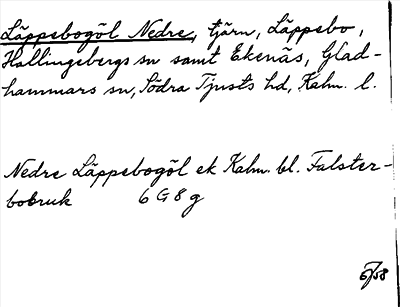 Läppebogöl Nedre, tjärn, Läppebo,
Hallingebergs sn samt Ekenäs, Glad-
hammars sn, Södra Tjusts hd, Kalm. l.
Nedre Läppebogöl ek Kalm. bl. Falster-
bobruk 6 G 8 g